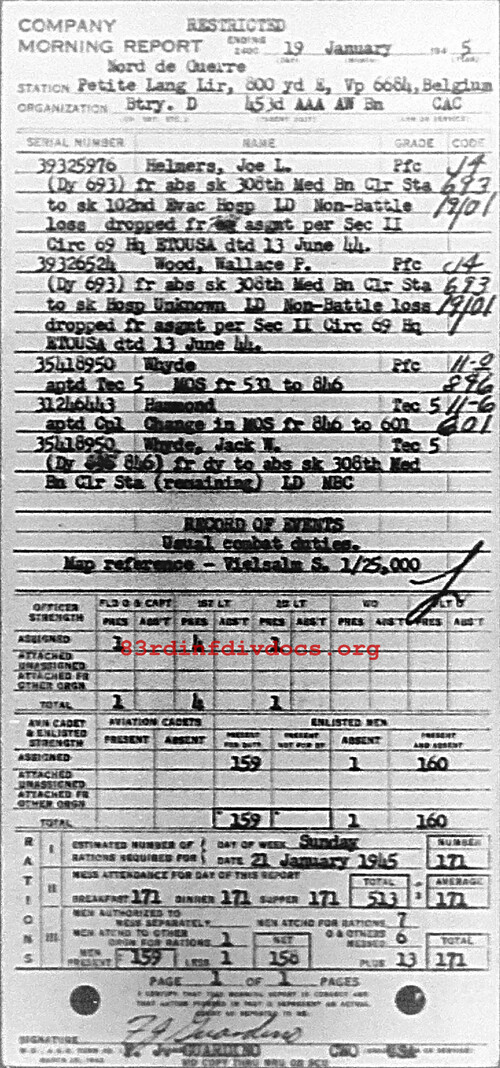 COMPANY RESTRICTED
MORNING REPORT ENDING 2400 19 January 194 5
Nord de Guerre
STATION Petite Lang Lir, 800 yd E, Vp 6684, Belgium
ORGANIZATION Btry. D 453d AAA AW Bn CAC
SERIAL NUMBER NAME GRADE CODE
39325976 Helmers, Joe L. Pfc J4
(Dy 693) fr abs sk 308th Med Bn Clr Sta 693
to sk 102nd Evac Hosp LD Non-Battle 19/01
loss dropped fr asgmt per Sec II
Circ 69 Hq ETOUSA dtd 13 June 44.
39326524 Wood, Wallace P. Pfc J4
(Dy 693) fr abs sk 308th Med Bn Clr Sta 693
to sk Hosp Unknown LD Non-Battle loss 19/01
dropped fr asgmt per Sec II Circ 69 Hq
ETOUSA dtd 13 June 44.
35418950 Whyde Pfc
aptd Tec 5 MOS fr 531 to 846 896
31246443 Hammond Tec 5 11-6
aptd Cpl Change in MOS fr 846 to 601 601
35418950 Whyde, Jack W. Tec 5
(Dy 846) fr dy to abs sk 308th Med
Bn Clr Sta (remaining) LD NBC
RECORD OF EVENTS
Usual combat duties.
Map reference - Vielsalm S. 1/25,000
OFFICER STRENGTH FLD O & CAPT 1ST LT 2D LT WO FLT O
PRES ABS'T PRES ABS'T PRES ABS'T PRES ABS'T PRES ABS'T
ASSIGNED 1 4 1
83rdinfdivdocs.org
ATTACHED UNASSIGNED
ATTACHED FR OTHER ORGN
TOTAL 1 4 1
AVN CADET & ENLISTED STRENGTH AVIATION CADETS ENLISTED MEN
PRESENT ABSENT PRESENT FOR DUTY PRESENT NOT FOR DY ABSENT PRESENT AND ABSENT
ASSIGNED 159 1 160
ATTACHED UNASSIGNED
ATTACHED FR OTHER ORGN
TOTAL 159 1 160
RATIONS
I ESTIMATED NUMBER OF RATIONS REQUIRED FOR DAY OF WEEK Sunday NUMBER
DATE 21 January 1945 171
II MESS ATTENDANCE FOR DAY OF THIS REPORT TOTAL AVERAGE
BREAKFAST 171 DINNER 171 SUPPER 171 513 171
III MEN AUTHORIZED TO MESS SEPARATELY MEN ATCHD FOR RATIONS 7
MEN ATCHD TO OTHER ORGN FOR RATIONS 1 NET O & OTHERS MESSED 6 TOTAL
MEN PRESENT 159 LESS 1 158 PLUS 13 171
PAGE 1 OF 1 PAGES
I CERTIFY THAT THIS MORNING REPORT IS CORRECT AND
SIGNATURE F J Guardino
F. J. GUARDINO CWO USA